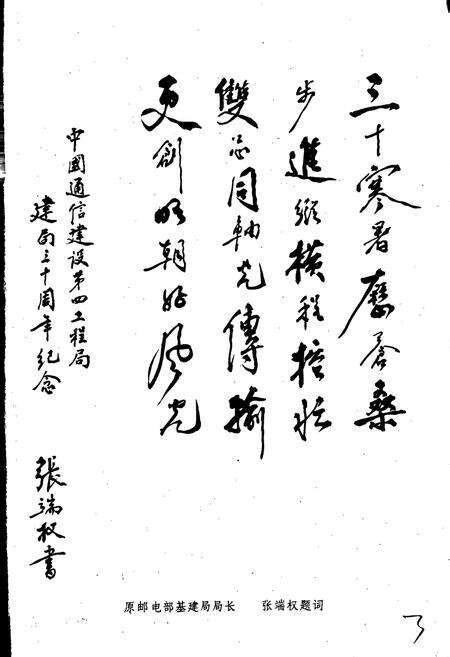 三十寒暑歷蒼桑
步進縱橫程控忙
雙芯同軸光傳輸
更創明朝好风光
中國通信建设第四工程局
建局三十周年纪念
張端权書
原邮电部基建局局长 张端权题词